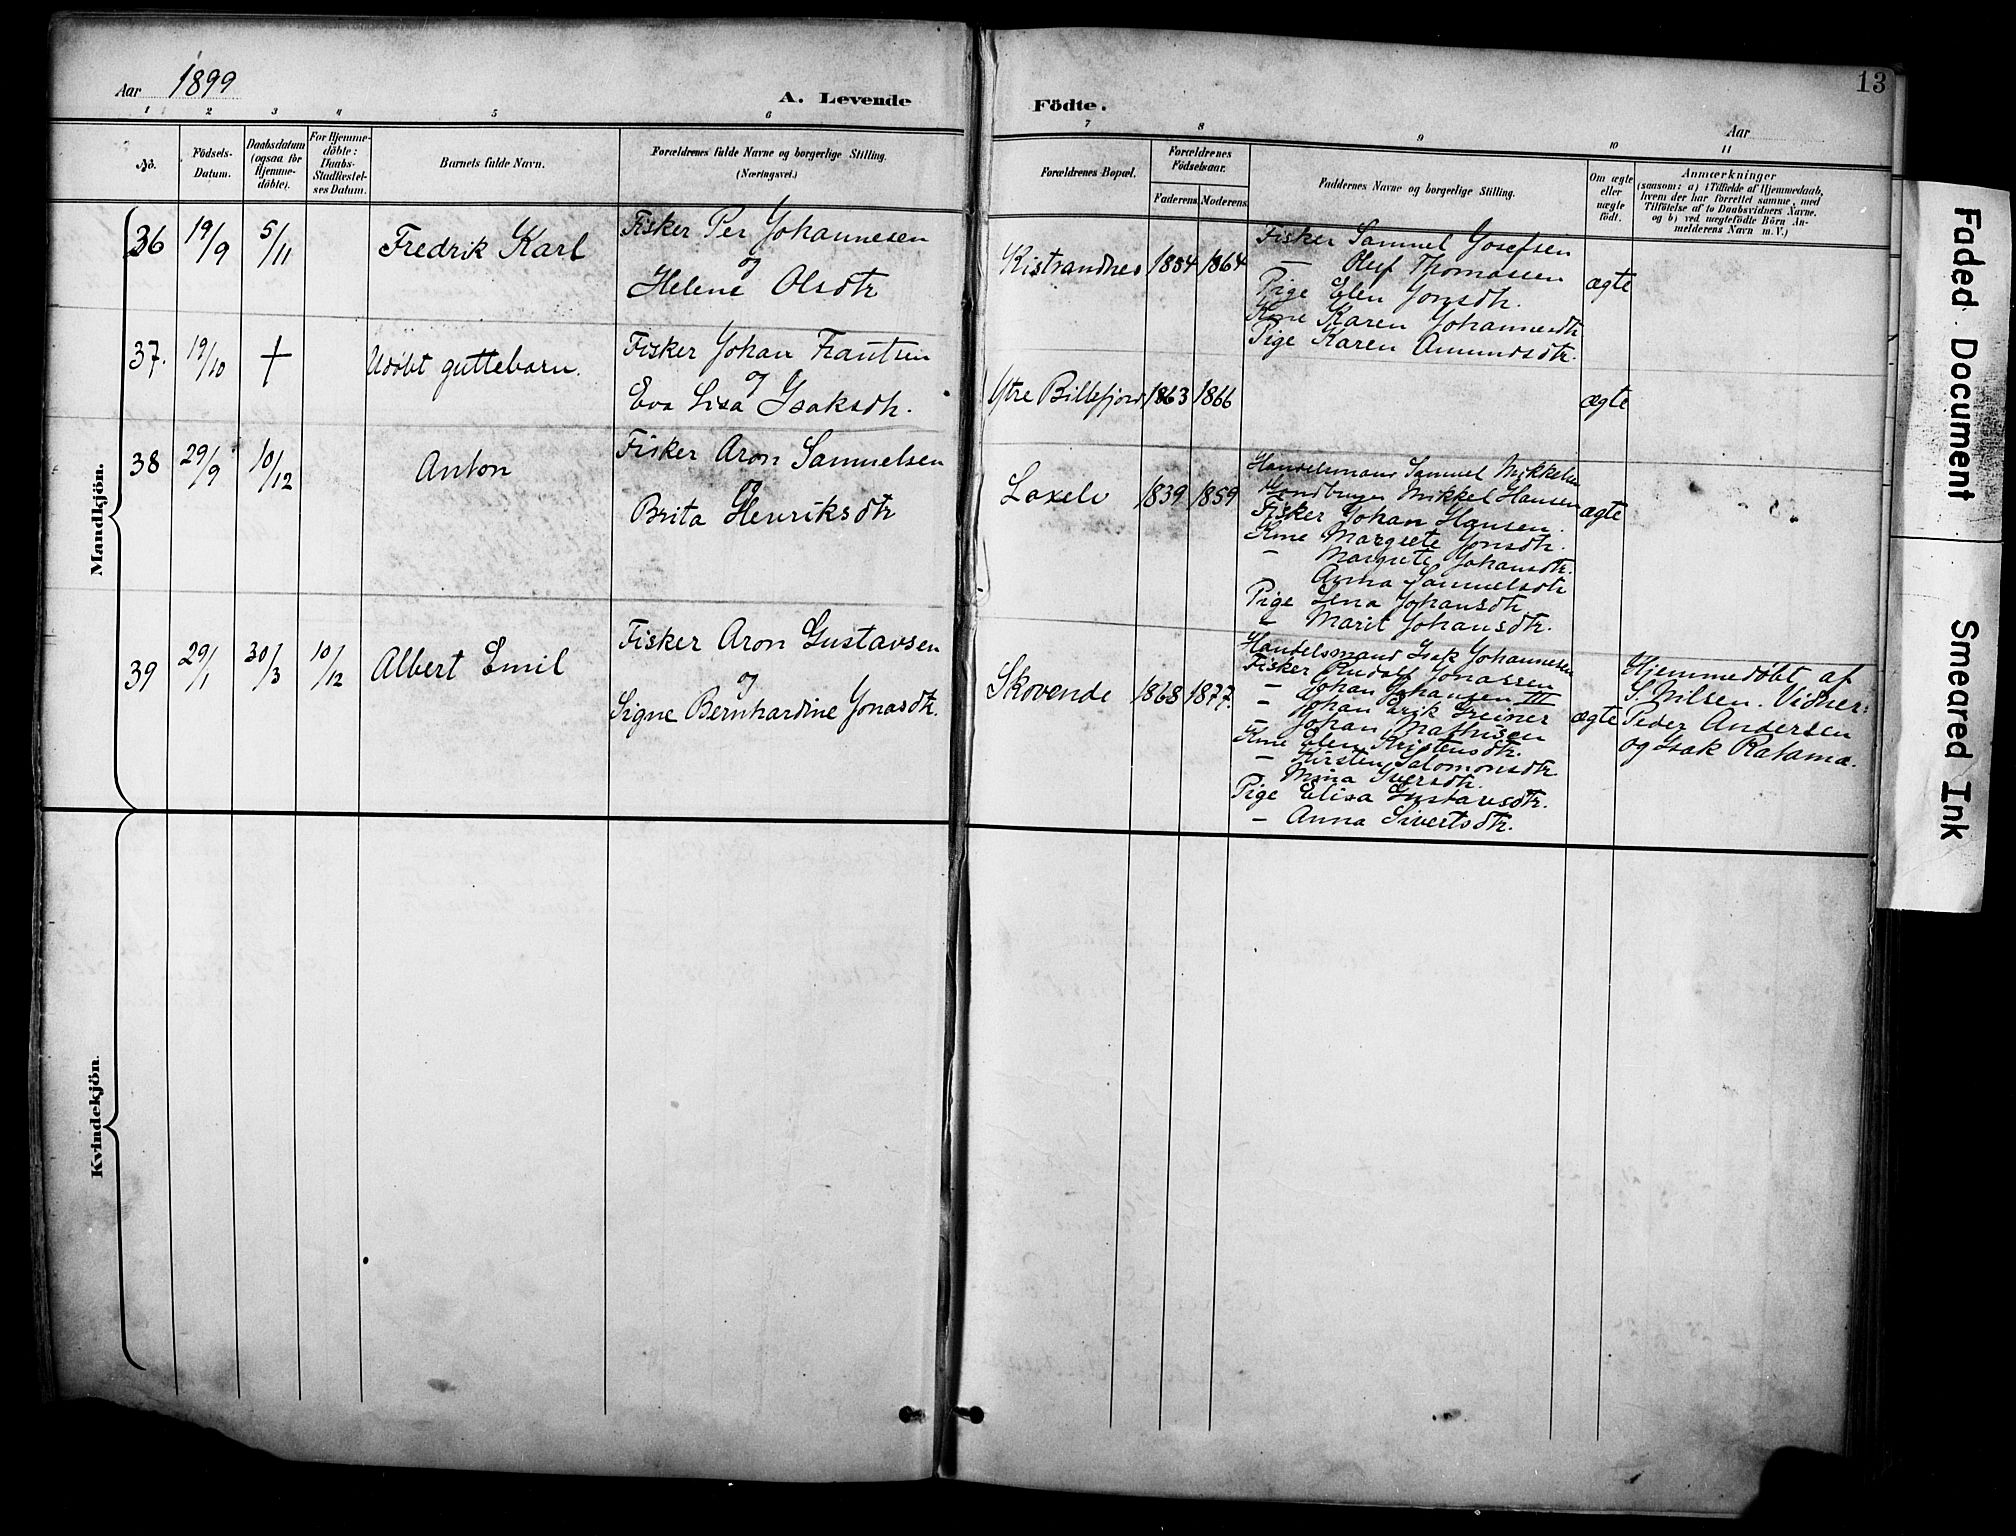 Aar 1899
A. Levende
Födte.
Aar
13
1 2 3 4 5 6
7 8 9 10 11
No.
Födsels-
Datum.
Daabsdatum
(ogsaa for
Hjemme-
döbte).
For Hjemme-
döbte:
Daabs-
Stadfæstel-
ses Datum.
Barnets fulde Navn.
Forældrenes fulde Navne og borgerlige Stilling.
(Næringsvei.)
Forældrenes Bopæl.
Forældrenes
Födselsaar.
Faderens. Moderens.
Faddernes Navne og borgerlige Stilling.
Om ægte
eller
uægte
födt.
Anmærkninger
(saasom: a) i Tilfælde af Hjemmedaab,
hvem der har forrettet samme, med
Tilföielse af to Daabsvidners Navne.
og b) ved uægtefödte Börn An-
melderens Navn m. V.)
Mandkjön.
36 19/9 5/11 Fredrik Karl
Fisker Per Johannesen
og
Helene Olsdtr
Kistrandnes 1854 1864
Fisker Samuel Josefsen
— Oluf Thomassen
Pige Elen Jonsdtr.
Kone Karen Johannesdtr
Pige Karen Amundsdtr.
ægte
37. 19/10 + Udøbt guttebarn.
Fisker Johan Frantsen
og
Eva Lisa Isaksdtr.
Ytre Billefjord 1863 1866
ægte
38 29/9 10/12 Anton
Fisker Aron Samuelsen
og
Brita Henriksdtr
Laxelv 1839 1859
Handelsmand Samuel Mikkelsen
Mikkel Hansen
Fisker Johan Hansen.
Kone Margrete Jonsdtr.
— Margrete Johansdtr.
Anna Samuelsdtr
Pige Lena Johansdtr.
— Marit Johansdtr.
ægte
39 29/1 30/3 10/12 Albert Emil
Fisker Aron Gustavsen
og
Signe Bernhardine Jonasdtr.
Skovende 1868 1877.
Handelsmand Isak Johannesen
Fisker Rudolf Jonassen
— Johan Johansen III
— Johan Erik Greiner
— Johan Mathisen
Kone Elen Kristensdtr.
— Kirsten Salomonsdtr
— Mina Iversdtr.
Pige Elisa Gustavsdtr.
— Anna Sivertsdtr.
ægte
Hjemmedøbt af
S. Nilsen. Vidner:
Peder Andersen
og Isak Ratama.
Kvindekjön.
Faded Document
Smeared Ink